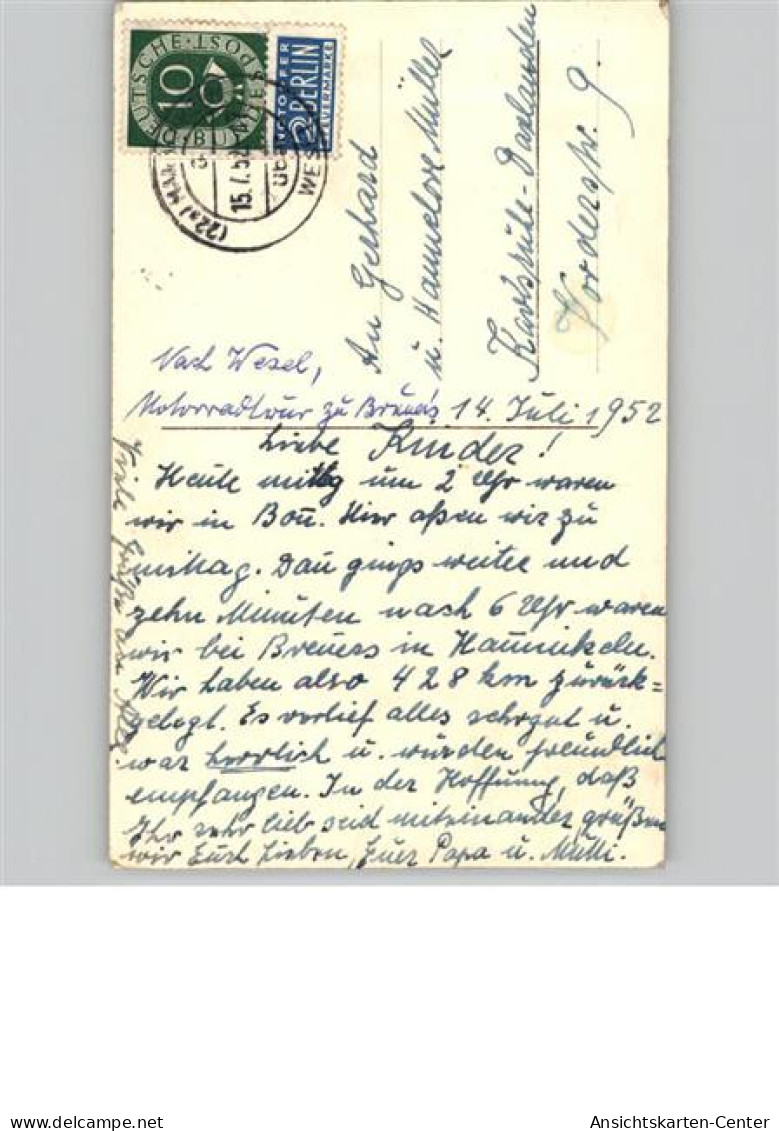 DEUTSCHE·POST
10
NOTOPFER
2 BERLIN
STEUERMARKE
(22a)
15.7.52
über
WESEL
An Gerhard
u. Hannelore Müller
Karlsruhe-Daxlanden
Vorderstr. 9
Nach Wesel,
Motorradtour zu Breuers
14. Juli 1952
Liebe Kinder!
Heute mittag um 2 Uhr waren
wir in Bon̄. Hier aßen wir zu
mittag. Dan̄ gings weiter und
zehn Minuten nach 6 Uhr waren
wir bei Breuers in
Wir haben also 428 km zurück=
gelegt. Es verlief alles sehr gut u.
war herrlich u. wurden freundlich
empfangen. In der Hoffnung, daß
Ihr sehr lieb seid miteinander, grüßen
wir Euch Lieben, Euer Papa u. Mutti.
Viele Grüße an Alle.
akpool.de
Ansichtskarten-Center